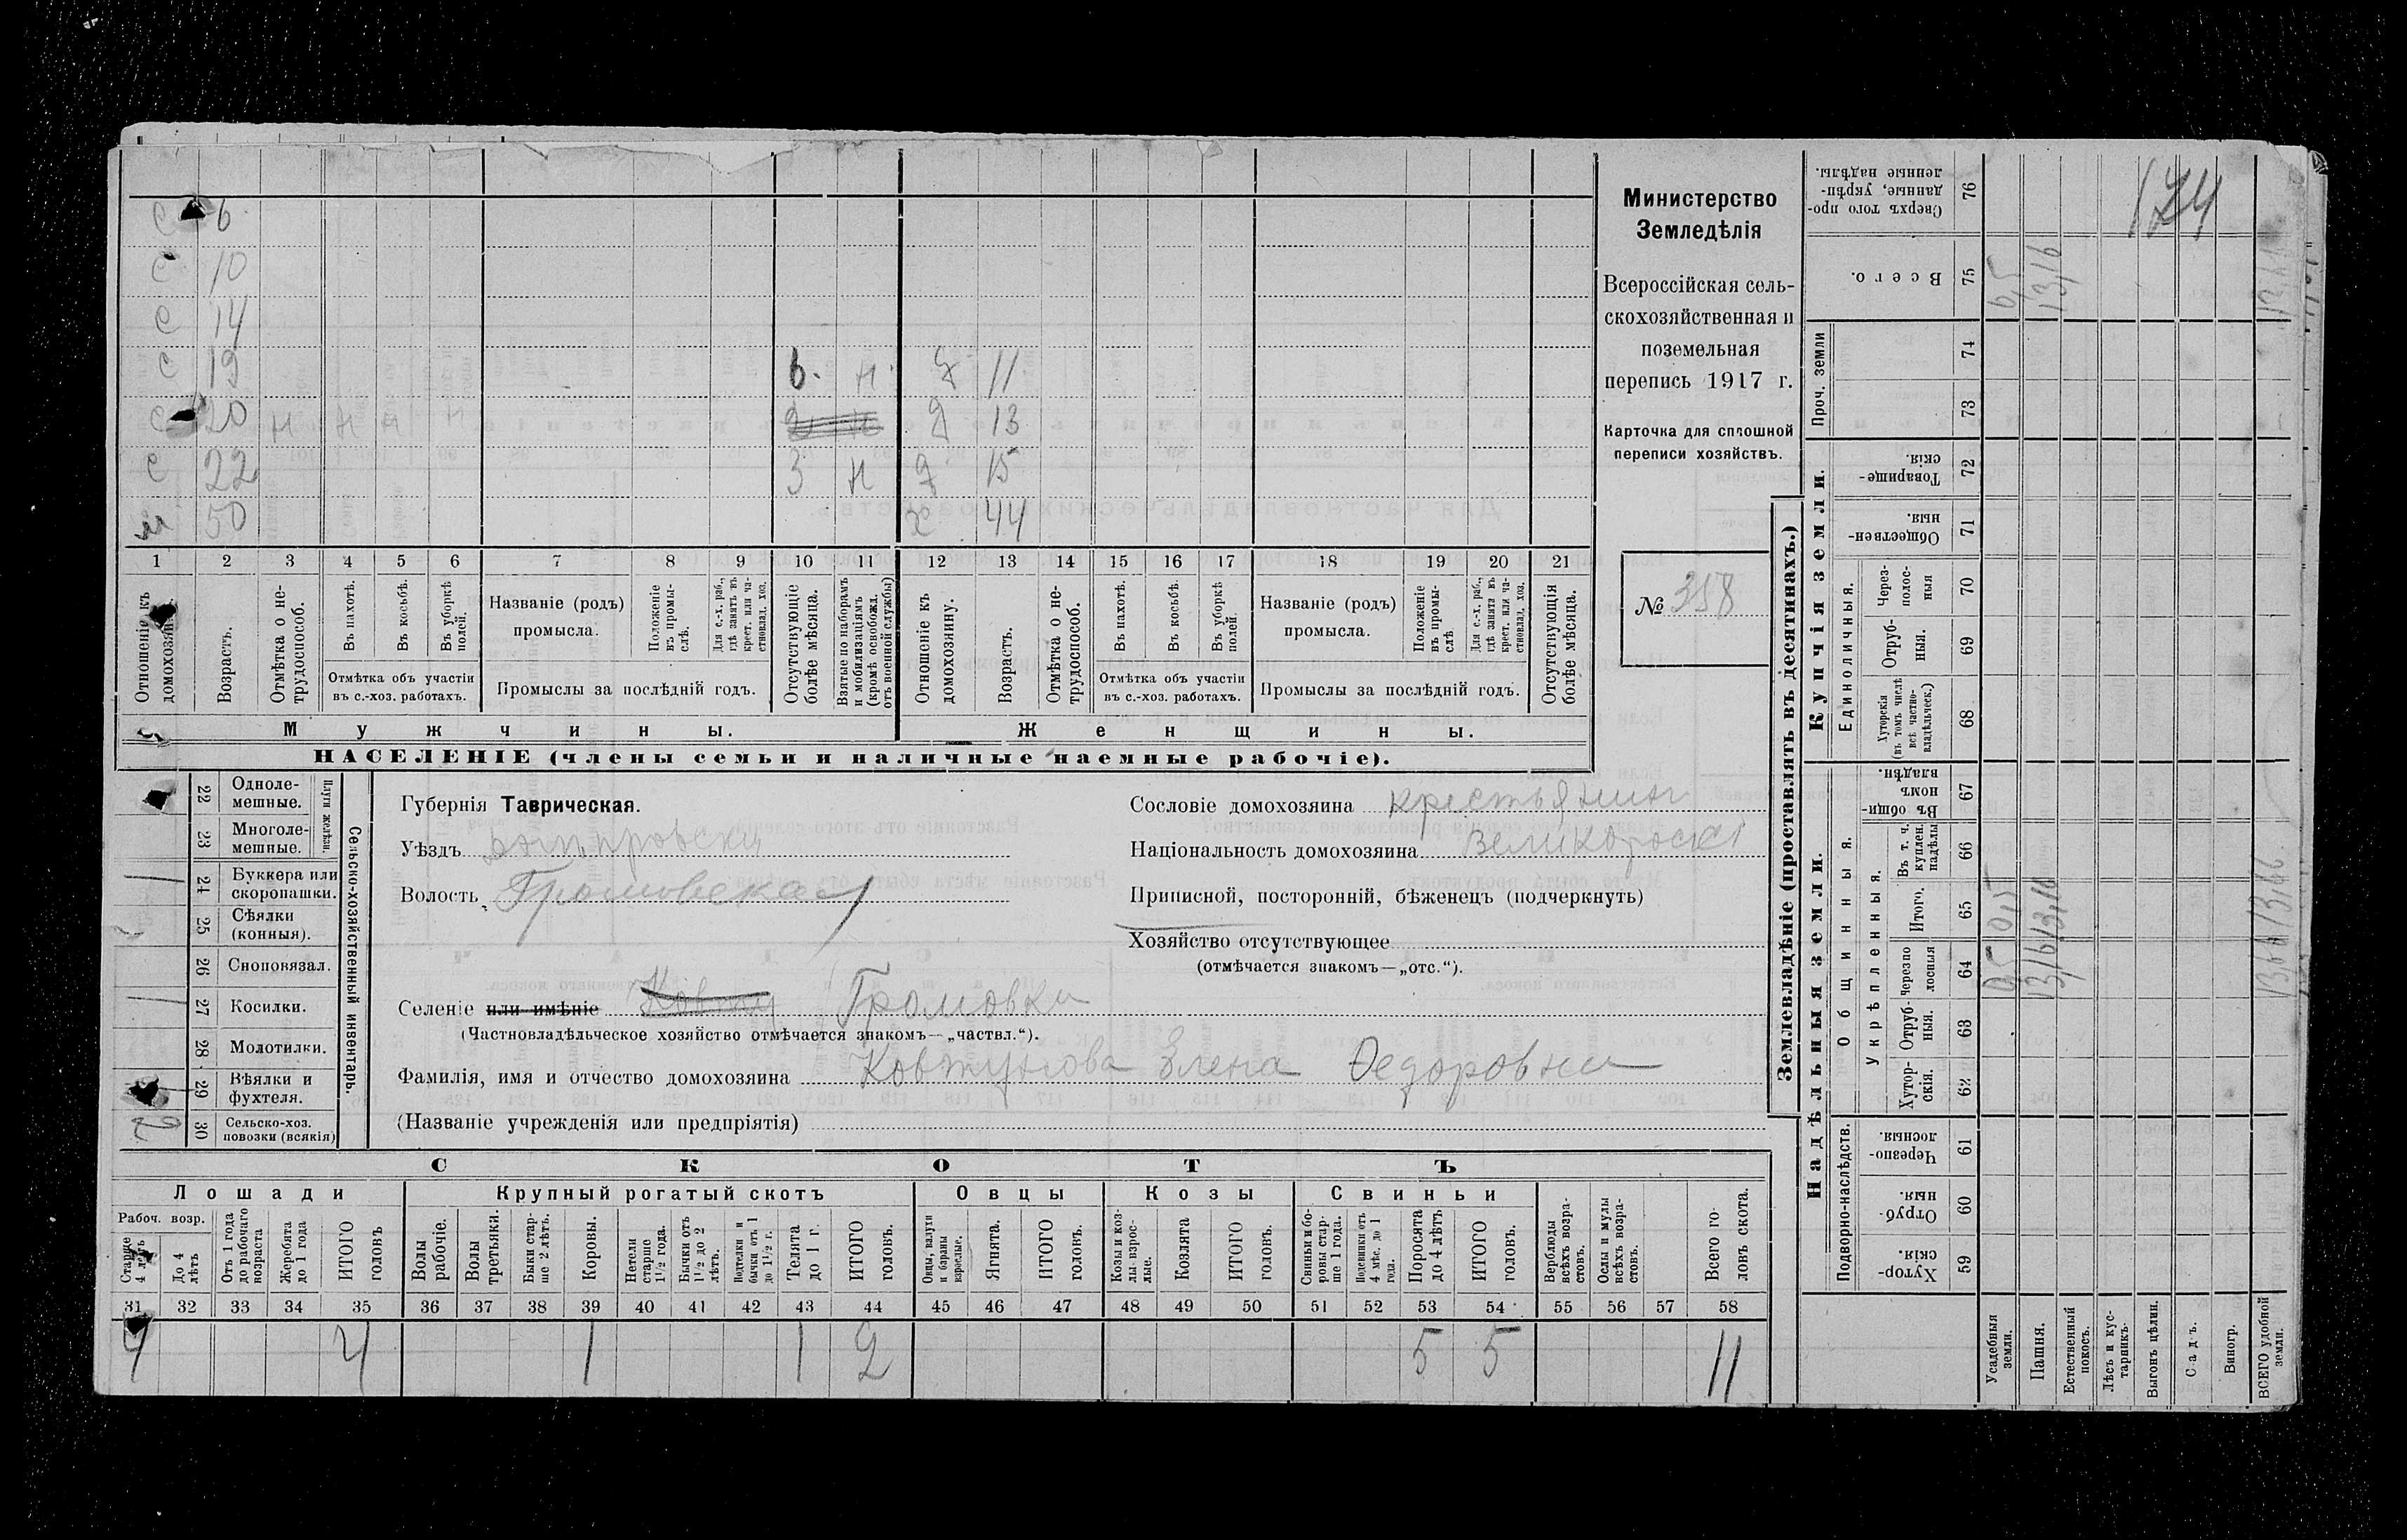 с 6
с 10
с 14
с 19 в. н. д 11
с 20 н н н н д 13
с 22 3 н д 15
м 50 х 44
1 2 3 4 5 6 7 8 9 10 11 12 13 14 15 16 17 18 19 20 21
Отношеніе къ домохозяину.
Возрастъ.
Отмѣтка о не-
трудоспособ.
Въ пахотѣ.
Въ косьбѣ.
Въ уборкѣ
полей.
Отмѣтка объ участіи
въ с.-хоз. работахъ.
Названіе (родъ)
промысла.
Положеніе
въ промы-
слѣ.
Для с.-х. раб.,
гдѣ занятъ въ
крест. или ча-
стновлад. хоз.
Промыслы за послѣдній годъ.
Отсутствующіе
болѣе мѣсяца.
Взятые по наборамъ
и мобилизаціямъ
(кромѣ освобожд.
отъ военной службы)
Отношеніе къ
домохозяину.
Возрастъ.
Отмѣтка о не-
трудоспособ.
Въ пахотѣ.
Въ косьбѣ.
Въ уборкѣ
полей.
Отмѣтка объ участіи
въ с.-хоз. работахъ.
Названіе (родъ)
промысла.
Положеніе
въ промы-
слѣ
Для с.-х. раб.,
гдѣ занята въ
крест. или ча-
стновлад. хоз.
Промыслы за послѣдній годъ.
Отсутствующія
болѣе мѣсяца.
Мужчины.
Женщины.
НАСЕЛЕНІЕ (члены семьи и наличные наемные рабочіе).
Министерство
Земледѣлія
Всероссійская сель-
скохозяйственная и
поземельная
перепись 1917 г.
Карточка для сплошной
переписи хозяйствъ.
№ 358
22 Одноле-
мешные.
23 Многоле-
мешные.
Плуги желѣзн.
24 Буккера или
скоропашки.
25 Сѣялки
(конныя).
26 Сноповязал.
27 Косилки.
28 Молотилки.
29 Вѣялки и
фухтеля.
30 Сельско-хоз.
повозки (всякія)
2
Сельско-хозяйственный инвентарь.
Губернія Таврическая.
Уѣздъ Днѣпровскій
Волость Громовская
Селеніе или имѣніе Громовка
(Частновладѣльческое хозяйство отмѣчается знакомъ—„частвл.“).
Фамилія, имя и отчество домохозяина Ковтунова Элена Ѳедоровна
(Названіе учрежденія или предпріятія)
Сословіе домохозяина крестьянин
Національность домохозяина Великоросс
Приписной, посторонній, бѣженецъ (подчеркнуть)
Хозяйство отсутствующее
(отмѣчается знакомъ—„отс.“).
СКОТЪ
Лошади
Крупный рогатый скотъ
Овцы
Козы
Свиньи
Рабоч. возр.
Старше
4 лѣтъ
До 4
лѣтъ
Отъ 1 года
до рабочаго
возраста
Жеребята
до 1 года
ИТОГО
головъ
Волы
рабочіе.
Волы
третьяки.
Быки стар-
ше 2 лѣтъ.
Коровы.
Нетели
старше
1½ года.
Бычки отъ
1½ до 2
лѣтъ.
Подтелки и
бычки отъ 1
до 1½ г.
Телята
до 1 г.
ИТОГО
головъ.
Овцы, валухи
и бараны
взрослые.
Ягнята.
ИТОГО
головъ.
Козы и коз-
лы взрос-
лые.
Козлята
ИТОГО
головъ.
Свиньи и бо-
ровы стар-
ше 1 года.
Подсвинки отъ
4 мѣс. до 1
года.
Поросята
до 4 лѣтъ
ИТОГО
головъ.
Верблюды
всѣхъ возра-
стовъ.
Ослы и мулы
всѣхъ возра-
стовъ.
Всего го-
ловъ скота.
31 32 33 34 35 36 37 38 39 40 41 42 43 44 45 46 47 48 49 50 51 52 53 54 55 56 57 58
4 4 1 1 2 5 5 11
Землевладѣніе (проставлять въ десятинахъ.)
Надѣльныя земли.
Купчія земли.
Проч. земли
Подворно-наслѣдств.
Общинныя.
Укрѣпленныя.
Единоличныя.
Сверхъ того про-
данные, укрѣп-
ленные надѣлы.
76
Всего.
75
74
73
Товарище-
скія.
72
Обществен-
ныя.
71
Через-
полос-
ныя
70
Отруб-
ныя.
69
Хуторскія
(въ томъ числѣ
всѣ частно-
владѣльческ.)
68
Въ общин-
номъ
владѣн.
67
Въ т. ч.
куплен.
надѣлы
66
Итого.
65
Черезпо
лосныя
64
Отруб-
ныя.
63
Хутор-
скія.
62
Черезпо-
лосныя.
61
Отруб-
ныя.
60
Хутор-
скія.
59
Усадебныя
земли.
Пашня.
Естественный
покосъ.
Лѣсъ и кус-
тарникъ.
Выгонъ цѣлин.
Садъ.
Виногр.
ВСЕГО удобной
земли.
174
0,5 0,5
13,16 13,16